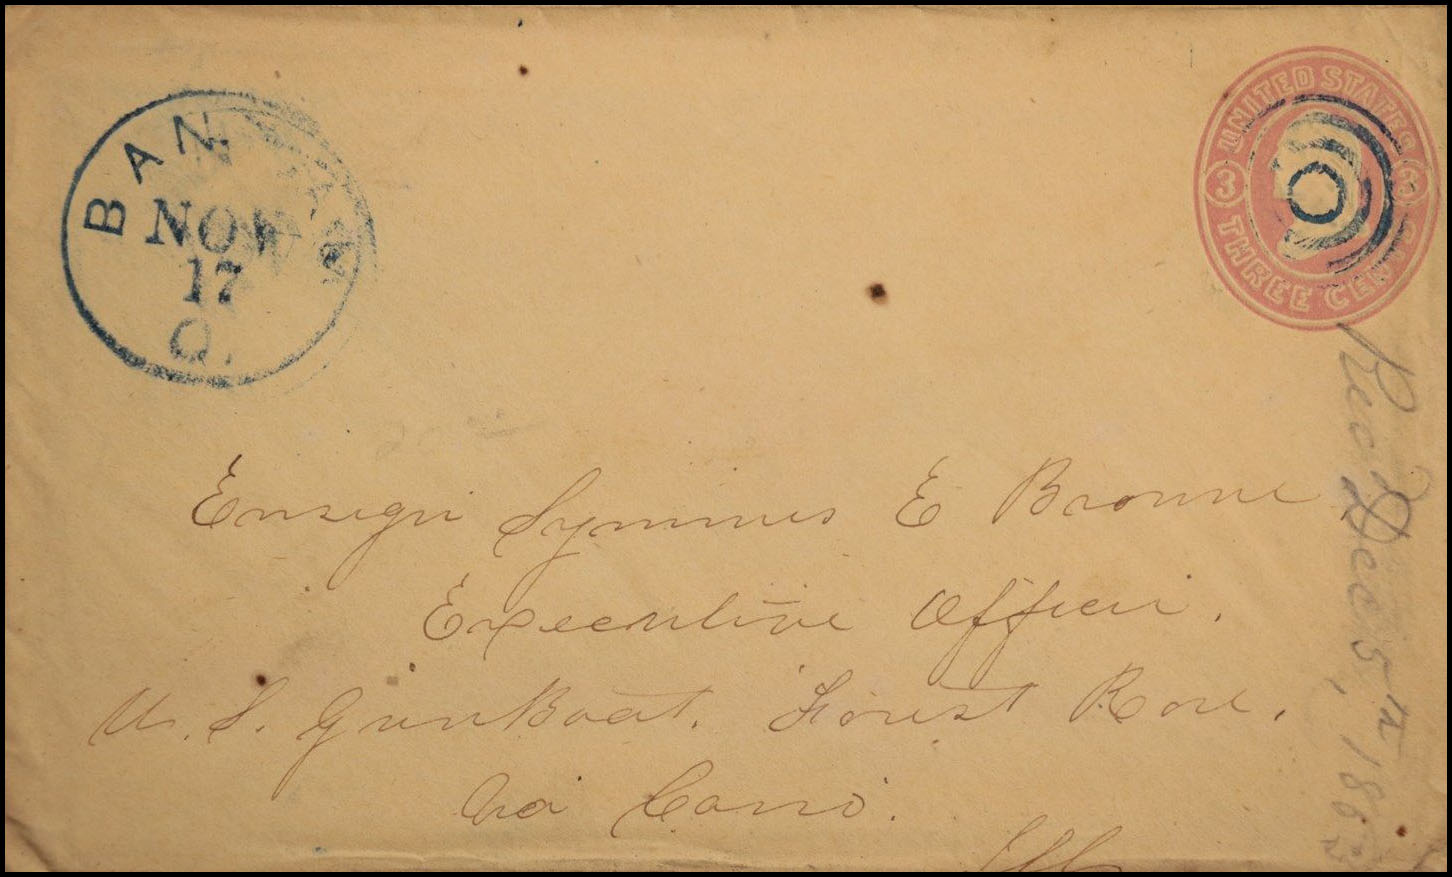 BAN
NOV
17
O.
UNITED STATES
3 3
THREE CENTS
Ensign Symmes E Browne,
Executive Officer.
U. S. GunBoat. Forest Rose.
Via Cairo.
Ills
Rec'd Dec 5th, 186